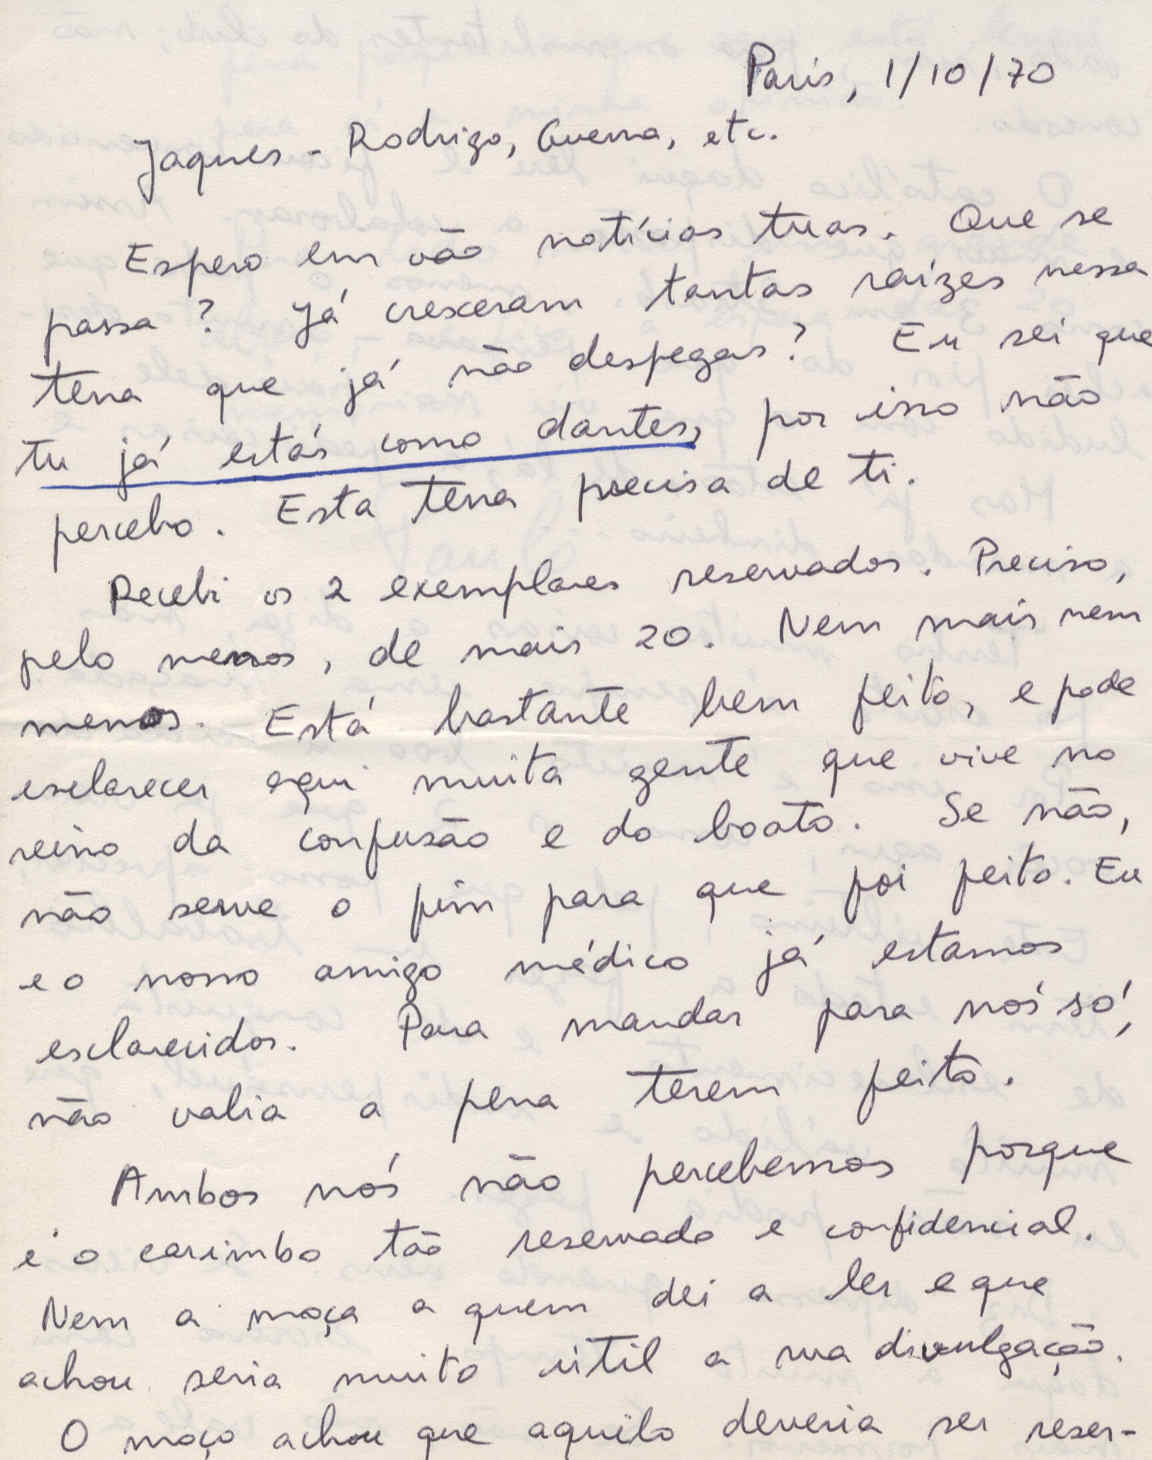 Paris, 1/10/70
Jaques - Rodrigo, Guerra, etc.
Espero em vão notícias tuas. Que se
passa? Já cresceram tantas raízes nessa
terra que já não despegas? Eu sei que
tu já estás como dantes, por isso não
percebo. Esta terra precisa de ti.
Recebi os 2 exemplares reservados. Preciso,
pelo menos, de mais 20. Nem mais nem
menos. Está bastante bem feito, e pode
esclarecer aqui muita gente que vive no
reino da confusão e do boato. Se não,
não serve o fim para que foi feito. Eu
e o nosso amigo médico já estamos
esclarecidos. Para mandar para nós só,
não valia a pena terem feito.
Ambos nós não percebemos porque
é o carimbo tão reservado e confidencial.
Nem a moça a quem dei a ler e que
achou seria muito útil a sua divulgação.
O moço achou que aquilo deveria ser reser-